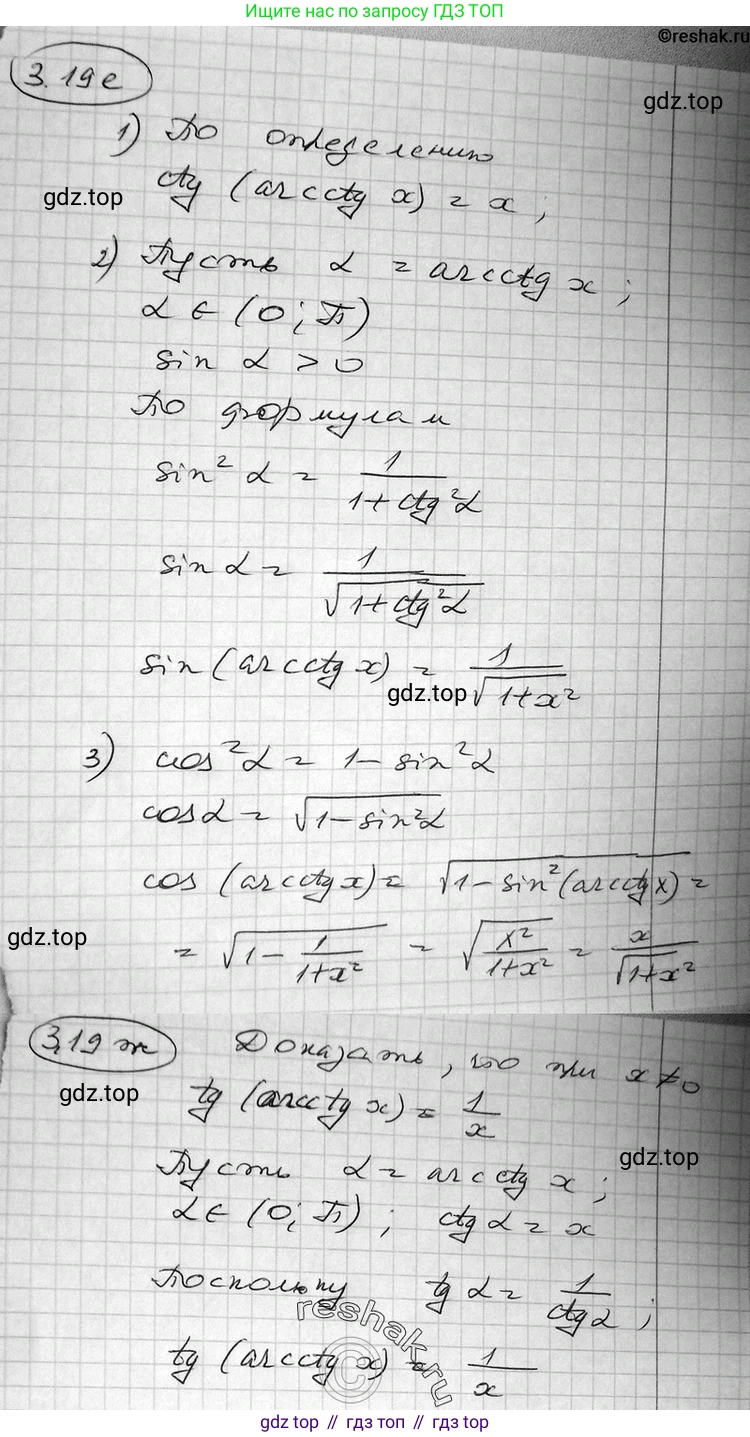 Ищите нас по запросу ГДЗ ТОП
©reshak.ru
3.19е
gdz.top
1) По определению
gdz.top
ctg (arcctg x) = x ;
2) Пусть α = arcctg x ;
α ∈ (0; π)
sin α > 0
По формулам
sin² α = 1/(1+ctg²α)
sin α = 1/√(1+ctg²α)
sin (arcctg x) = 1/√(1+x²)
gdz.top
3) cos²α = 1 - sin²α
cos α = √(1-sin²α)
cos (arcctg x) = √(1-sin²(arcctg x)) =
gdz.top
= √(1 - 1/(1+x²)) = √(x²/(1+x²)) = x/√(1+x²)
3.19 ж Доказать, что при x ≠ 0
gdz.top
tg (arcctg x) = 1/x
gdz.top
Пусть α = arcctg x ;
α ∈ (0; π) ; ctg α = x
Поскольку tg α = 1/ctg α ;
reshak.ru
©
tg (arcctg x) = 1/x
gdz top // гдз топ // gdz top